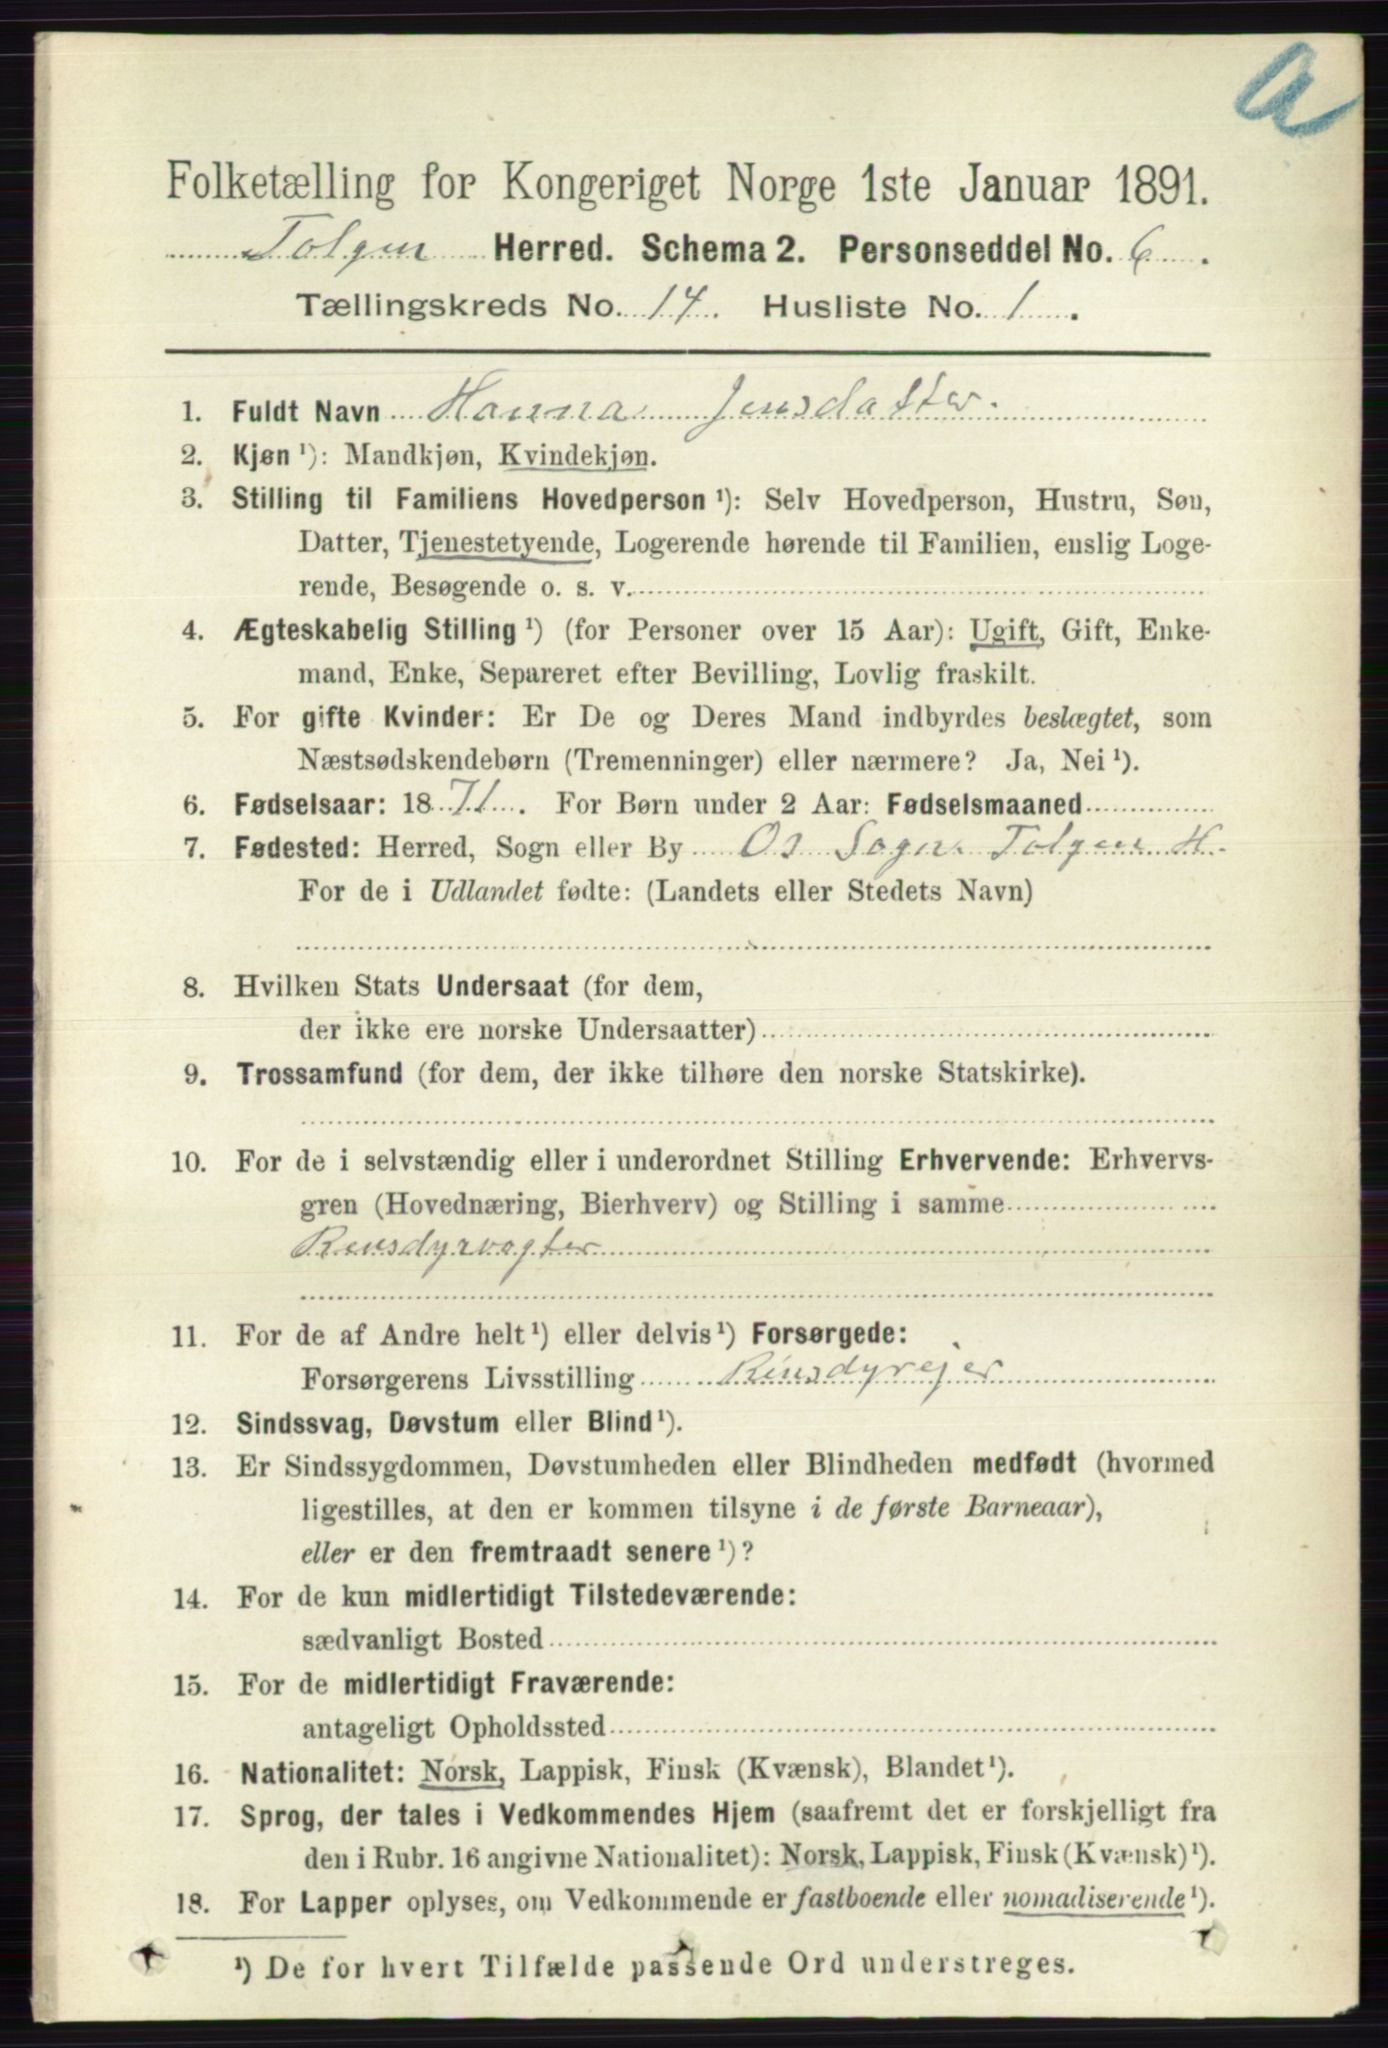 a
Folketælling for Kongeriget Norge 1ste Januar 1891.
Tolgen Herred. Schema 2. Personseddel No. 6.
Tællingskreds No. 14. Husliste No. 1.
1. Fuldt Navn Hanna Jensdatter.
2. Kjøn ¹): Mandkjøn, Kvindekjøn.
3. Stilling til Familiens Hovedperson ¹): Selv Hovedperson, Hustru, Søn,
Datter, Tjenestetyende, Logerende hørende til Familien, enslig Loge-
rende, Besøgende o. s. v.
4. Ægteskabelig Stilling ¹) (for Personer over 15 Aar): Ugift, Gift, Enke-
mand, Enke, Separeret efter Bevilling, Lovlig fraskilt.
5. For gifte Kvinder: Er De og Deres Mand indbyrdes beslægtet, som
Næstsødskendebørn (Tremenninger) eller nærmere? Ja, Nei ¹).
6. Fødselsaar: 1871. For Børn under 2 Aar: Fødselsmaaned
7. Fødested: Herred, Sogn eller By Os Sogn Tolgen H.
For de i Udlandet fødte: (Landets eller Stedets Navn)
8. Hvilken Stats Undersaat (for dem,
der ikke ere norske Undersaatter)
9. Trossamfund (for dem, der ikke tilhøre den norske Statskirke).
10. For de i selvstændig eller i underordnet Stilling Erhvervende: Erhvervs-
gren (Hovednæring, Bierhverv) og Stilling i samme
Rensdyrvogter
11. For de af Andre helt ¹) eller delvis ¹) Forsørgede:
Forsørgerens Livsstilling Rensdyrejer
12. Sindssvag, Døvstum eller Blind ¹).
13. Er Sindssygdommen, Døvstumheden eller Blindheden medfødt (hvormed
ligestilles, at den er kommen tilsyne i de første Barneaar),
eller er den fremtraadt senere ¹)?
14. For de kun midlertidigt Tilstedeværende:
sædvanligt Bosted
15. For de midlertidigt Fraværende:
antageligt Opholdssted
16. Nationalitet: Norsk, Lappisk, Finsk (Kvænsk), Blandet ¹).
17. Sprog, der tales i Vedkommendes Hjem (saafremt det er forskjelligt fra
den i Rubr. 16 angivne Nationalitet): Norsk, Lappisk, Finsk (Kvænsk) ¹).
18. For Lapper oplyses, om Vedkommende er fastboende eller nomadiserende ¹).
¹) De for hvert Tilfælde passende Ord understreges.